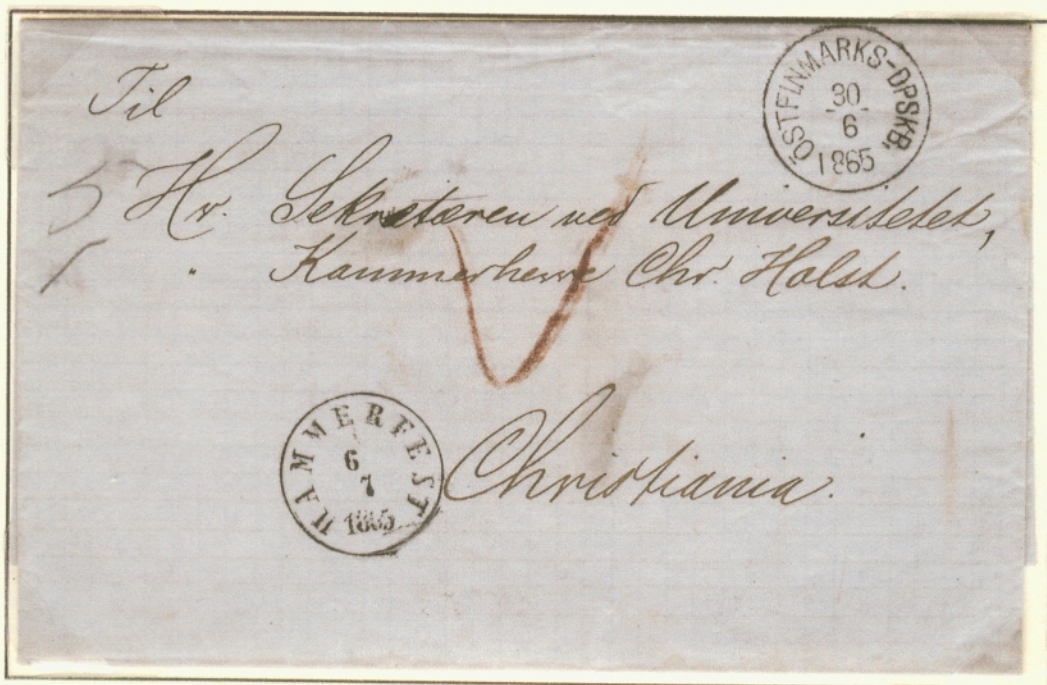 Til
ÖSTFINMARKS-DPSKB.
30
6
1865
Hr. Sekretæren ved Universitetet,
" Kammerherre Chr. Holst.
HAMMERFEST
6
7
1865
Christiania.